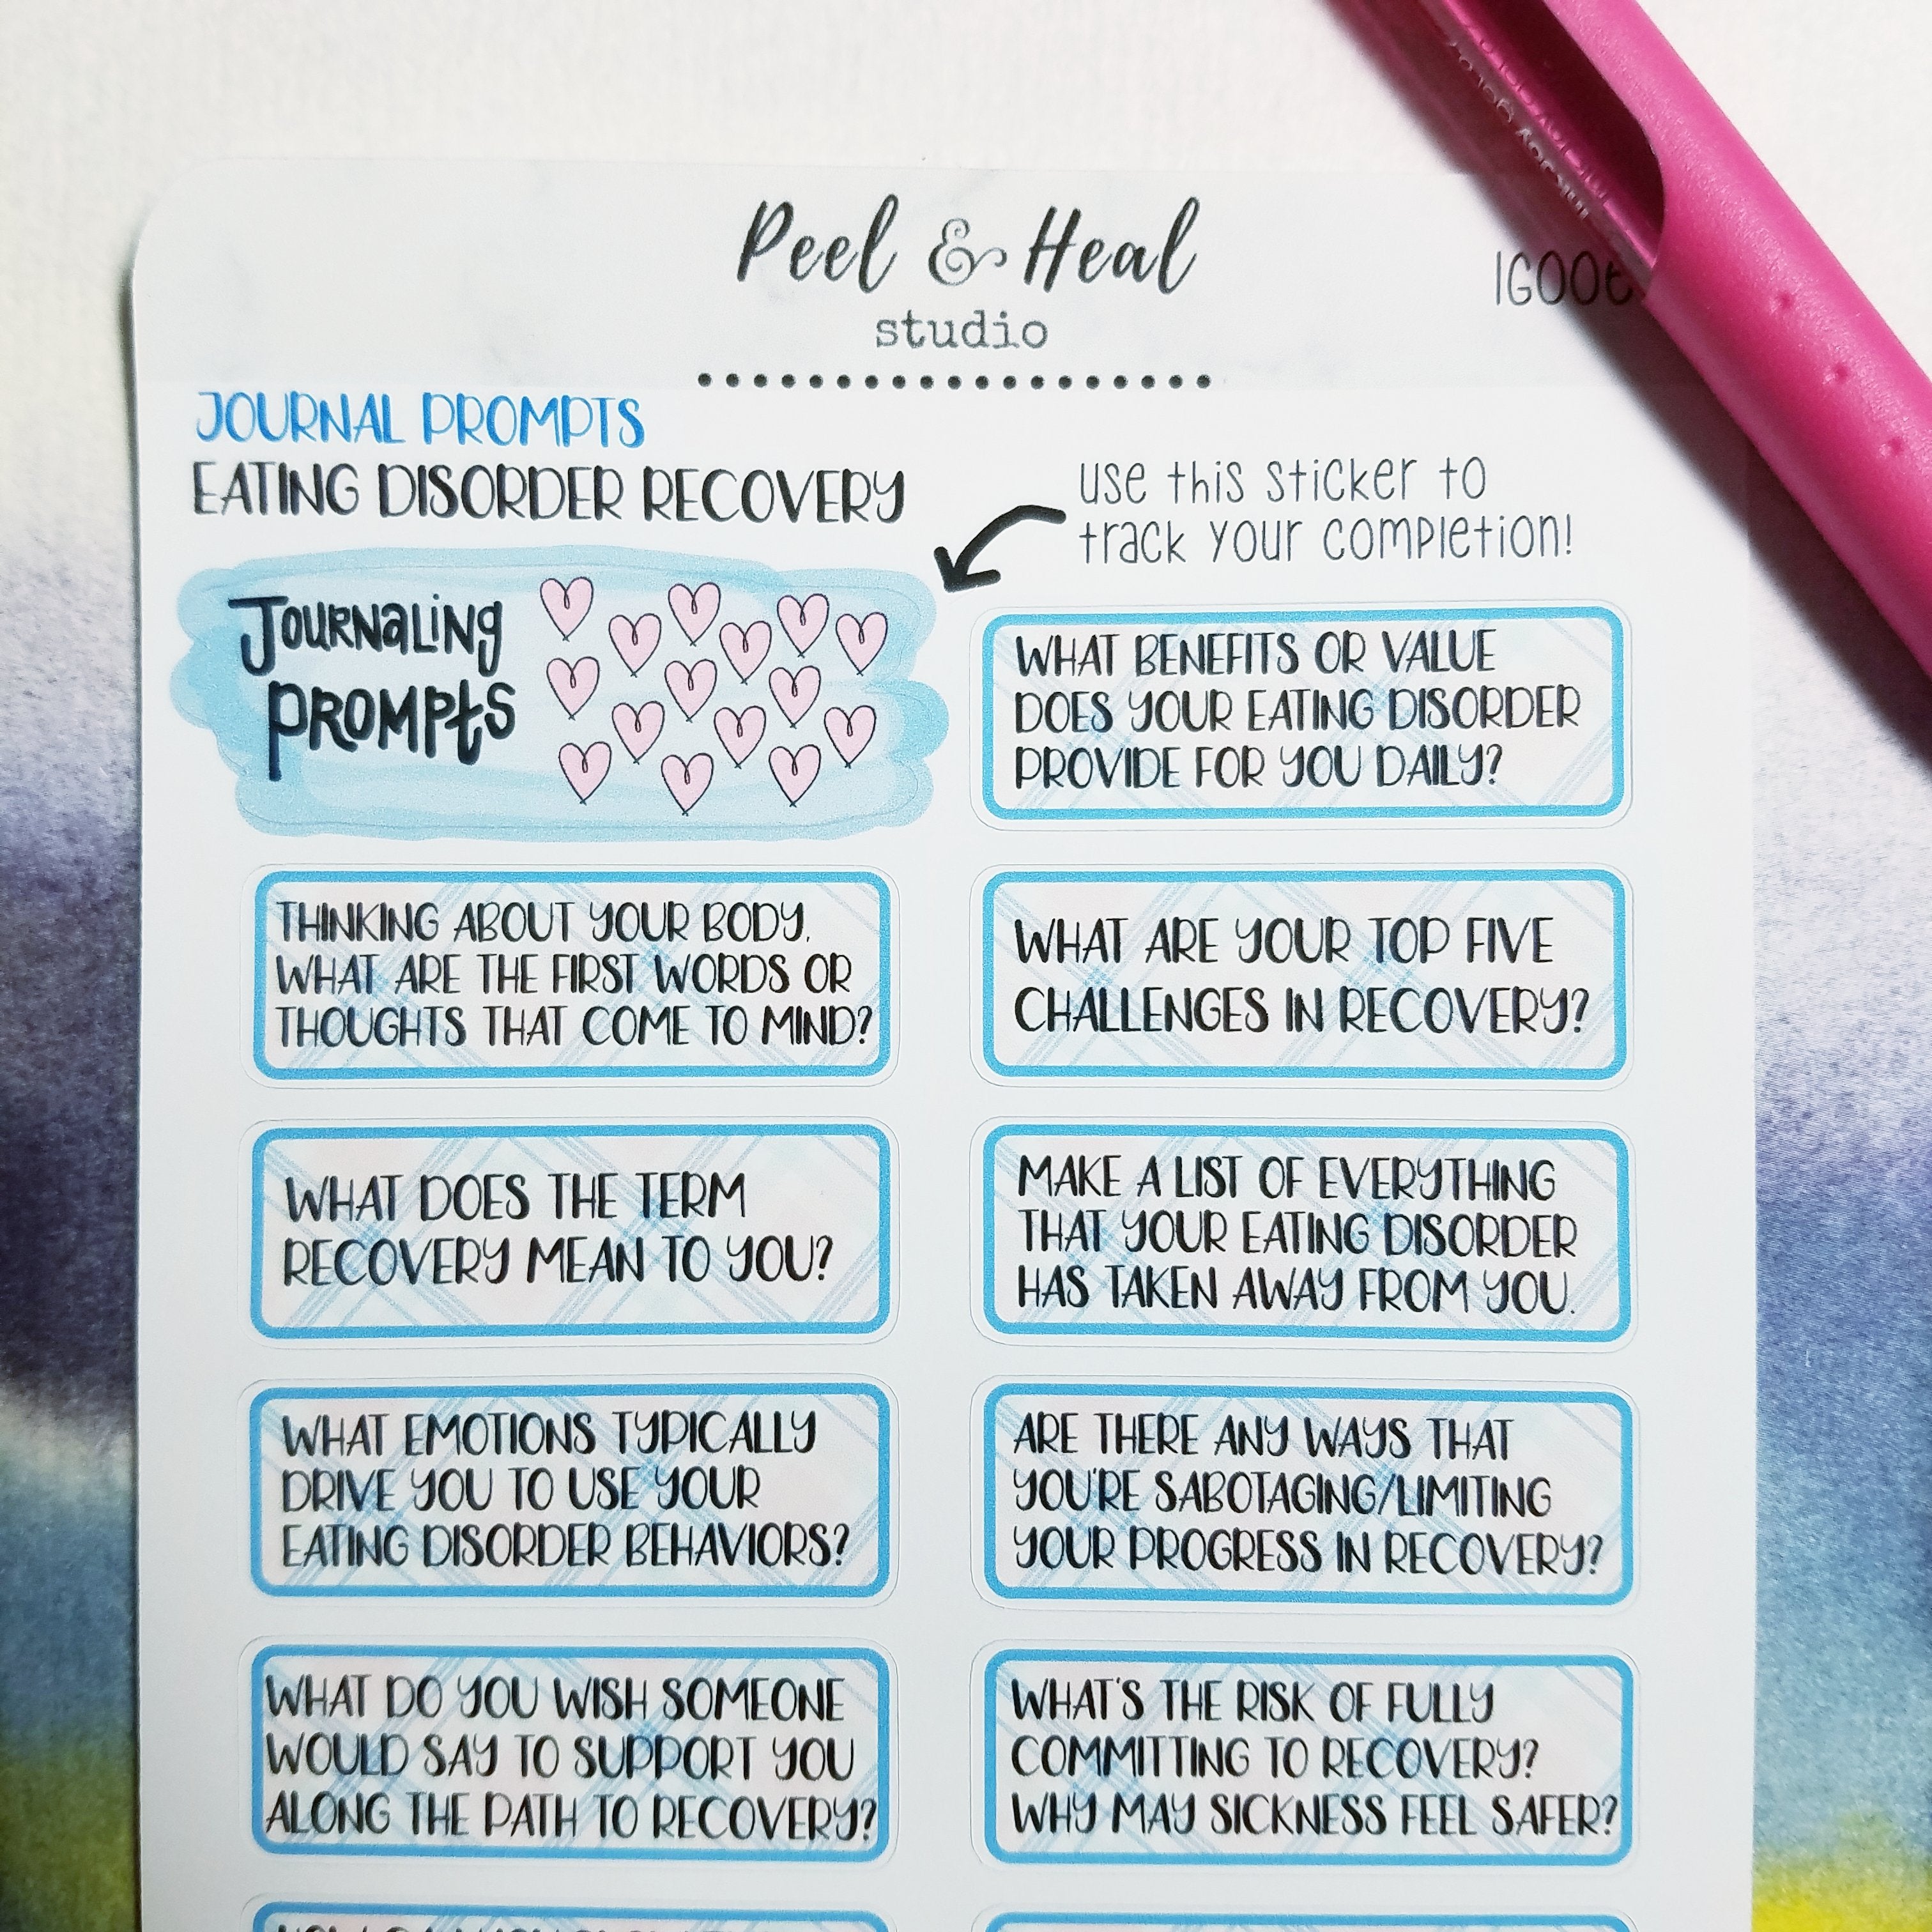 Peel & Heal
studio
JOURNAL PROMPTS
EATING DISORDER RECOVERY
use this sticker to
track your completion!
JOURNALING
PROMPTS
WHAT BENEFITS OR VALUE
DOES YOUR EATING DISORDER
PROVIDE FOR YOU DAILY?
THINKING ABOUT YOUR BODY,
WHAT ARE THE FIRST WORDS OR
THOUGHTS THAT COME TO MIND?
WHAT ARE YOUR TOP FIVE
CHALLENGES IN RECOVERY?
WHAT DOES THE TERM
RECOVERY MEAN TO YOU?
MAKE A LIST OF EVERYTHING
THAT YOUR EATING DISORDER
HAS TAKEN AWAY FROM YOU.
WHAT EMOTIONS TYPICALLY
DRIVE YOU TO USE YOUR
EATING DISORDER BEHAVIORS?
ARE THERE ANY WAYS THAT
YOU'RE SABOTAGING/LIMITING
YOUR PROGRESS IN RECOVERY?
WHAT DO YOU WISH SOMEONE
WOULD SAY TO SUPPORT YOU
ALONG THE PATH TO RECOVERY?
WHAT'S THE RISK OF FULLY
COMMITTING TO RECOVERY?
WHY MAY SICKNESS FEEL SAFER?